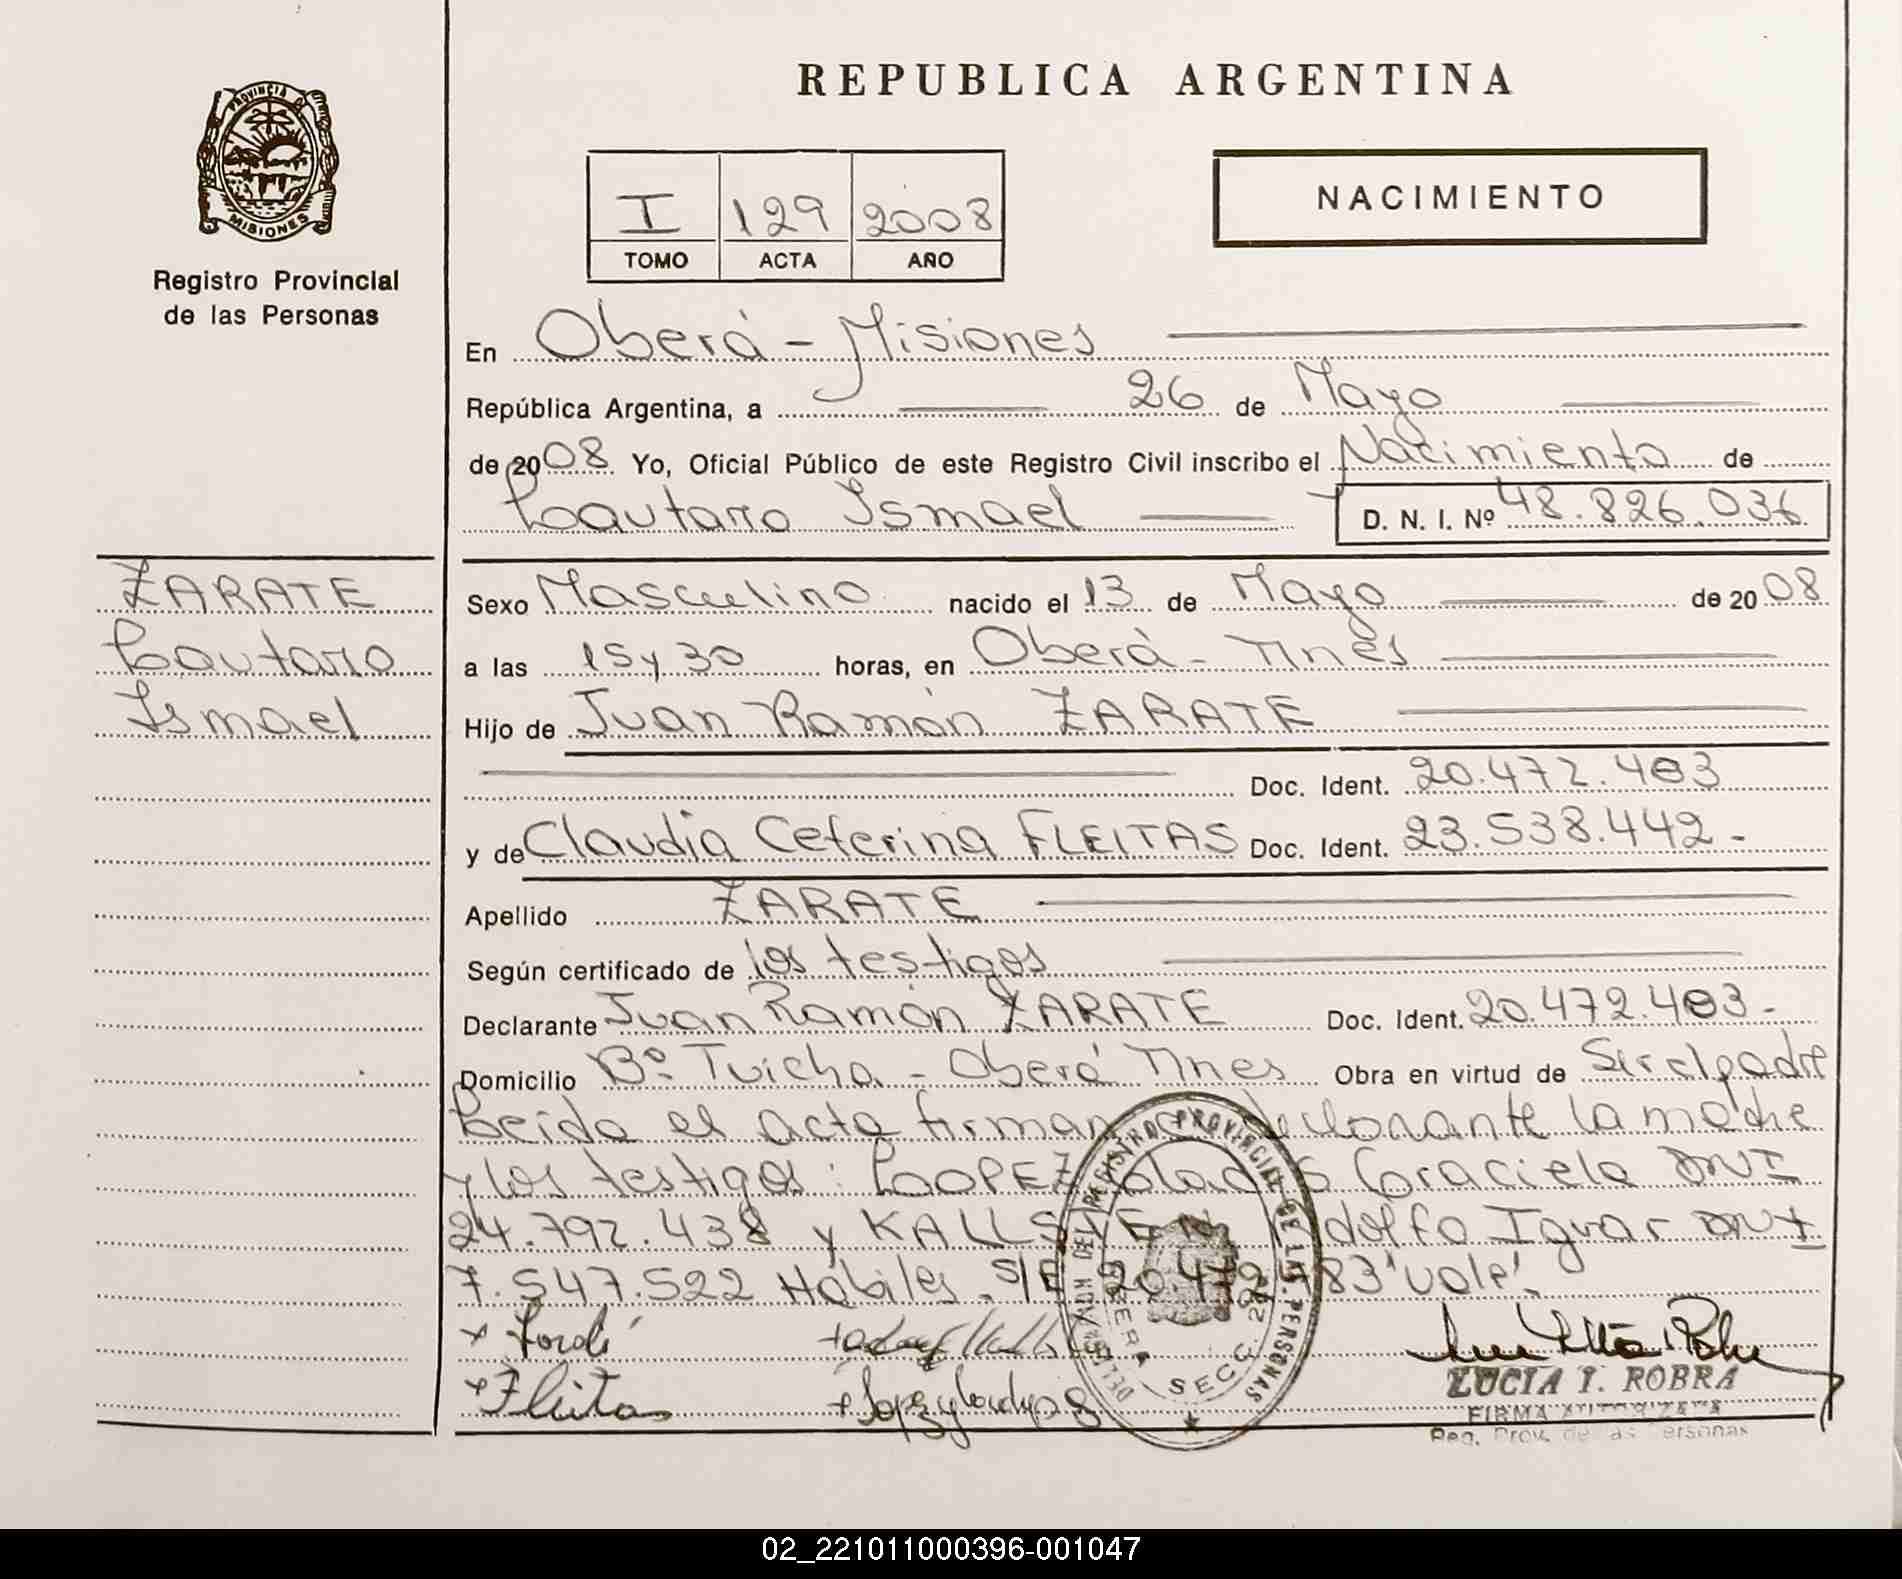 REPUBLICA ARGENTINA
PROVINCIA D
MISIONES
Registro Provincial
de las Personas
I 129 2008
TOMO ACTA AÑO
NACIMIENTO
En Oberá - Misiones
República Argentina, a 26 de Mayo
de 2008 Yo, Oficial Público de este Registro Civil inscribo el Nacimiento de
Lautaro Ismael D. N. I. Nº 48.826.036
ZARATE
Lautaro
Ismael
Sexo Masculino nacido el 13 de Mayo de 2008
a las 15 y 30 horas, en Oberá - Mnes
Hijo de Juan Ramón ZARATE
Doc. Ident. 20.472.483
y de Claudia Ceferina FLEITAS Doc. Ident. 23.538.442-
Apellido ZARATE
Según certificado de los testigos
Declarante Juan Ramón ZARATE Doc. Ident. 20.472.483-
Domicilio Bº Tuicha - Oberá Mnes Obra en virtud de Ser el padre
Leida el acta firman declarante la madre
y los testigos: LOOPEZ Graciela DNI
24.792.438 y KALLSTEN Adolfo Iguar DNI
7.547.522 Hábiles. S/E 20.472.483 "vale".
DEL REGISTRO PROVINCIAL DE LAS PERSONAS
OBERA
SECC. 2da
Fleitas
LUCIA I. ROBRA
FIRMA AUTORIZADA
Reg. Prov. de las Personas
02_221011000396-001047